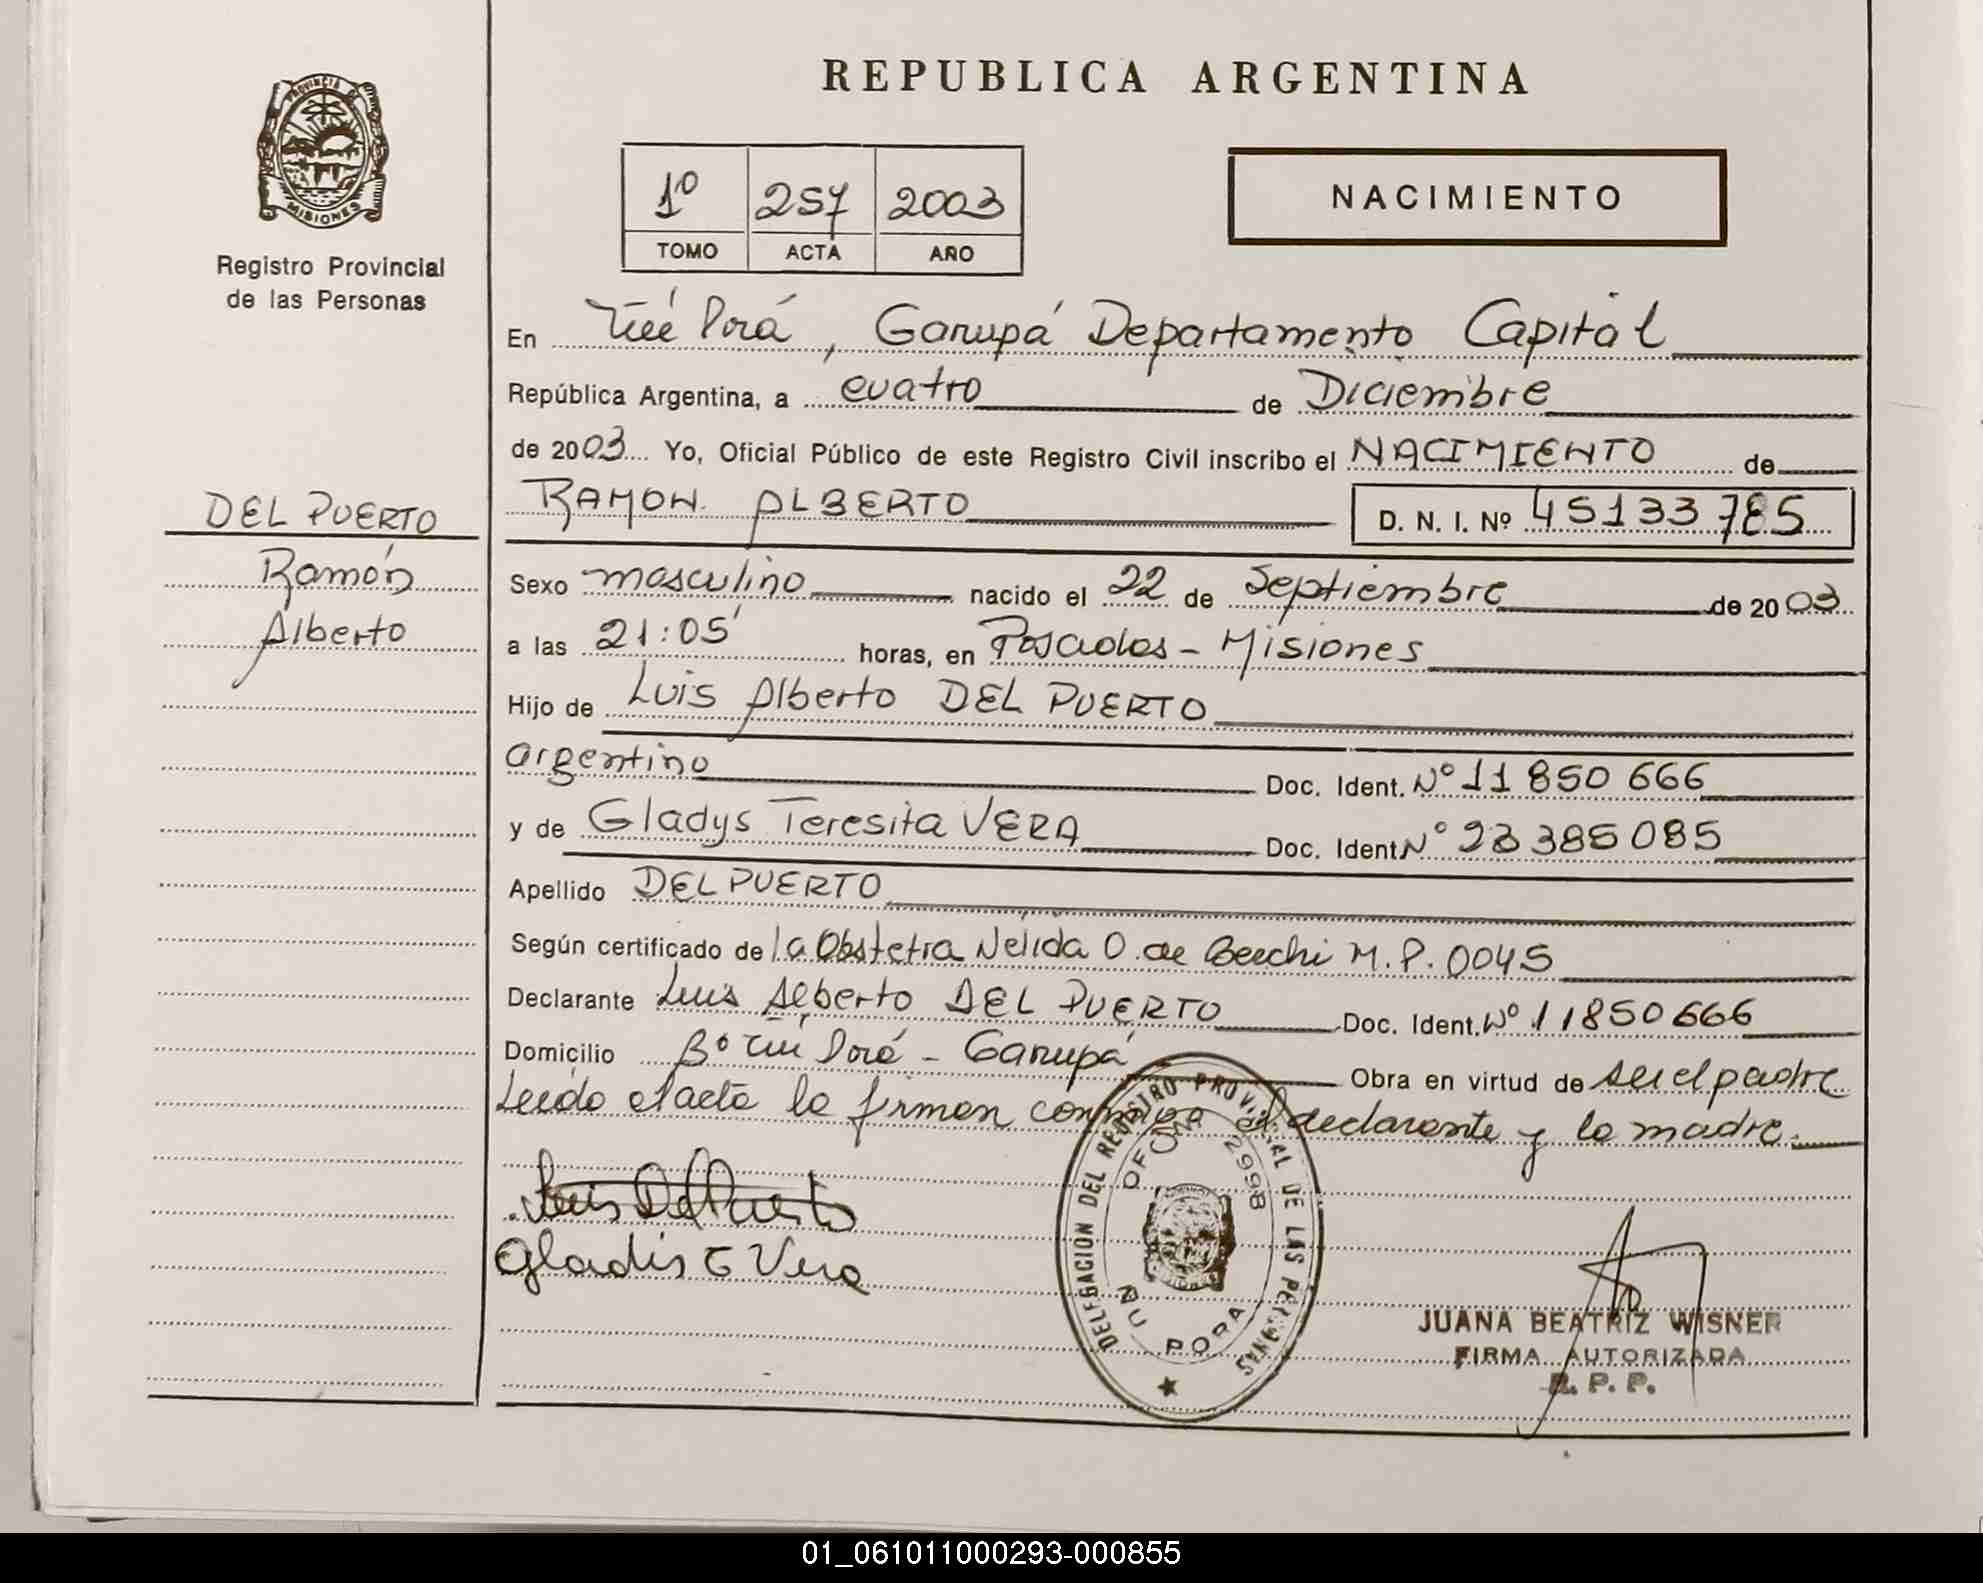 REPUBLICA ARGENTINA
PROVINCIA DE
MISIONES
Registro Provincial
de las Personas
1º 257 2003
TOMO ACTA AÑO
NACIMIENTO
En Porá, Garupá Departamento Capital
República Argentina, a cuatro de Diciembre
de 2003 Yo, Oficial Público de este Registro Civil inscribo el NACIMIENTO de
RAMON ALBERTO D. N. I. Nº 45133785
DEL PUERTO
Ramón
Alberto
Sexo masculino nacido el 22 de Septiembre de 2003
a las 21:05' horas, en Posadas - Misiones
Hijo de Luis Alberto DEL PUERTO
argentino Doc. Ident. Nº 11 850 666
y de Gladys Teresita VERA Doc. Ident. Nº 23 385 085
Apellido DEL PUERTO
Según certificado de la Obstetra Nélida O. de M.P. 0045
Declarante Luis Alberto DEL PUERTO Doc. Ident. Nº 11850666
Domicilio Bº Porá - Garupá Obra en virtud de ser el padre
Leído el acta la firman conmigo el declarante y la madre.
Luis Del Puerto
Gladis T Vera
DELEGACION DEL REGISTRO PROVINCIAL DE LAS PERSONAS
OFICINA 2998
ÑU PORA
JUANA BEATRIZ WISNER
FIRMA AUTORIZADA
R. P. P.
01_061011000293-000855